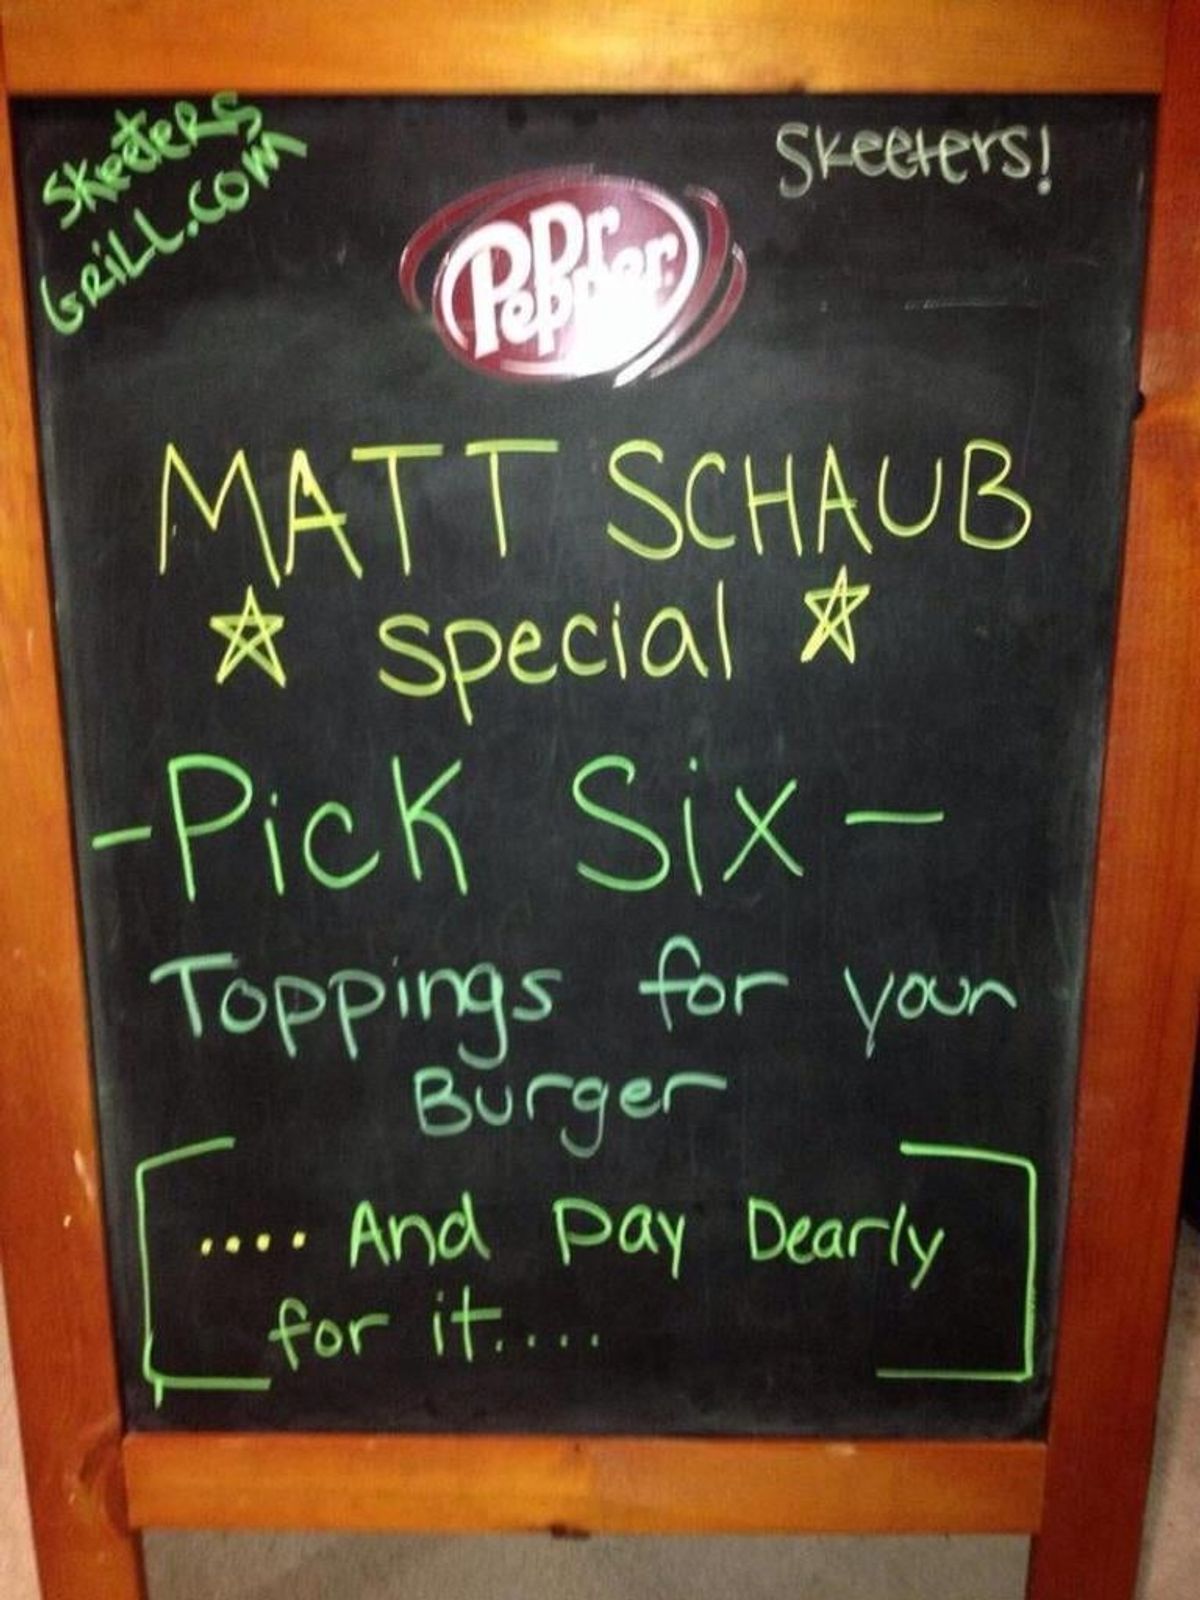 Skeeters
Grill.com
Skeeters!
Dr
Pepper
MATT SCHAUB
special
-Pick Six-
Toppings for your
Burger
.... And pay Dearly
for it....